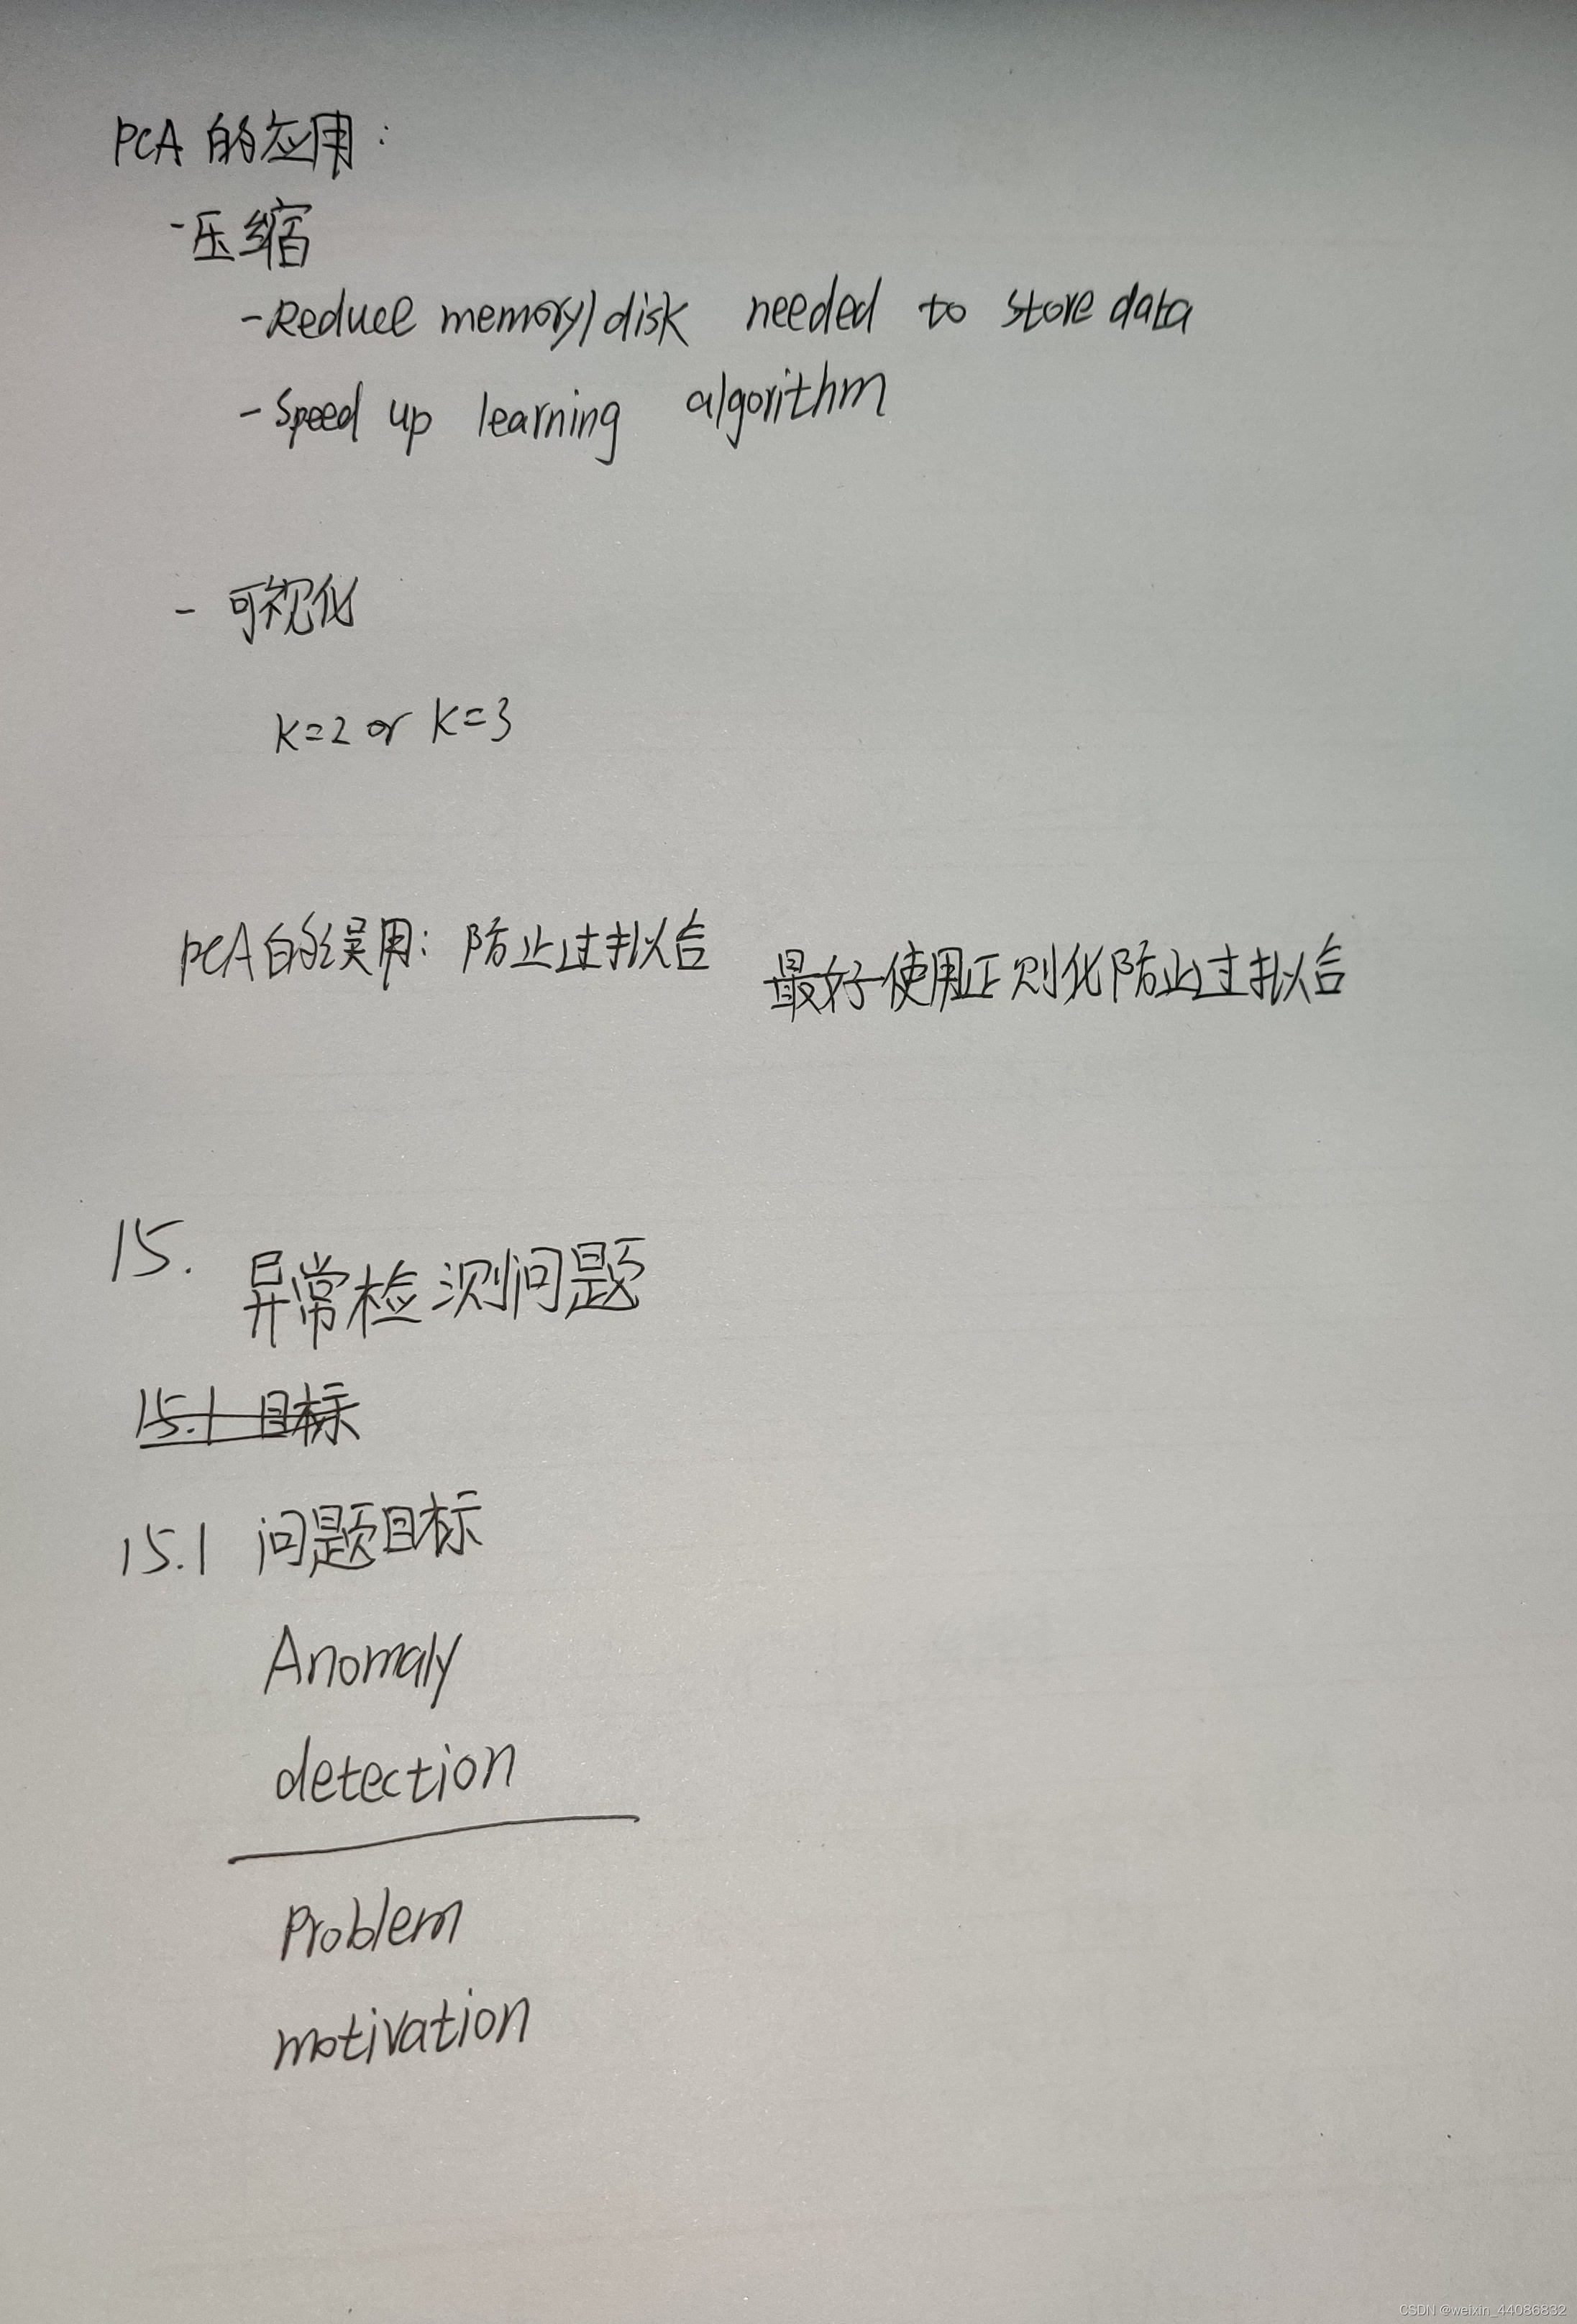 PCA 的应用：
-压缩
-Reduce memory/disk needed to store data
-Speed up learning algorithm
- 可视化
k=2 or k=3
PCA的误用：防止过拟合 最好使用正则化防止过拟合
15. 异常检测问题
15.1 目标
15.1 问题目标
Anomaly
detection
Problem
motivation
CSDN @weixin_44086832